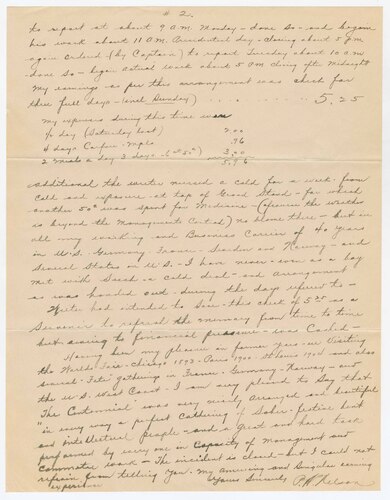 # 2.
to report at about 9 A.M. Monday - done so - and began
his work about 11 A.M. Accidental day - closing about 5 P.M.
again ordered (by Captain) to report Tuesday about 10 a.m.
done so - began actual work about 5 P.M. closing after Midnight
My earnings as per this arrangement was check for
three full days - (incl Sunday) 5.25
My expenses during this time were
½ day (Saturday lost) 2.00
4 days Carfare .96
2 Meals a day 3 days - (at 50¢) 3.00
5.96
Additional the writer nursed a cold for a week from
cold and exposure at top of Grand Stand - for which
another 50¢ was spent for Medicine - (of course the weather
is beyond the Managements Control) no blame there - but in
all my working and Business Carrier of 40 years
in U.S. Germany France - Sweden and Norway - and
Several States in U.S. - I have never - even as a boy
met with Such a cold deal - and Arrangement
as was handed out - during the days referred to -
Writer had intended to Save this check of 5.25 as a
Souvenir to refresh the memory from time to time
but owing to financial pressure - was Cashed -
Having been my pleasure in former years - in Visiting
the Worlds Fair - Chicago 1893 - Paris 1900 St Louis 1904 and also
several Fate gatherings in France - Germany - Norway - and
the U.S. West Coast - I am very pleased to Say that
The Centennial was very neatly Arranged and beautiful
in every way a perfect Gathering of Sober - festive bent
and intellectual people - and a great and hard task
performed by every one in Capacity of Managment and
Committee work - The incident is closed - but I could not
refrain from telling You - My amusing and Singular earning
experience
Yours Sincerely P. Nelson